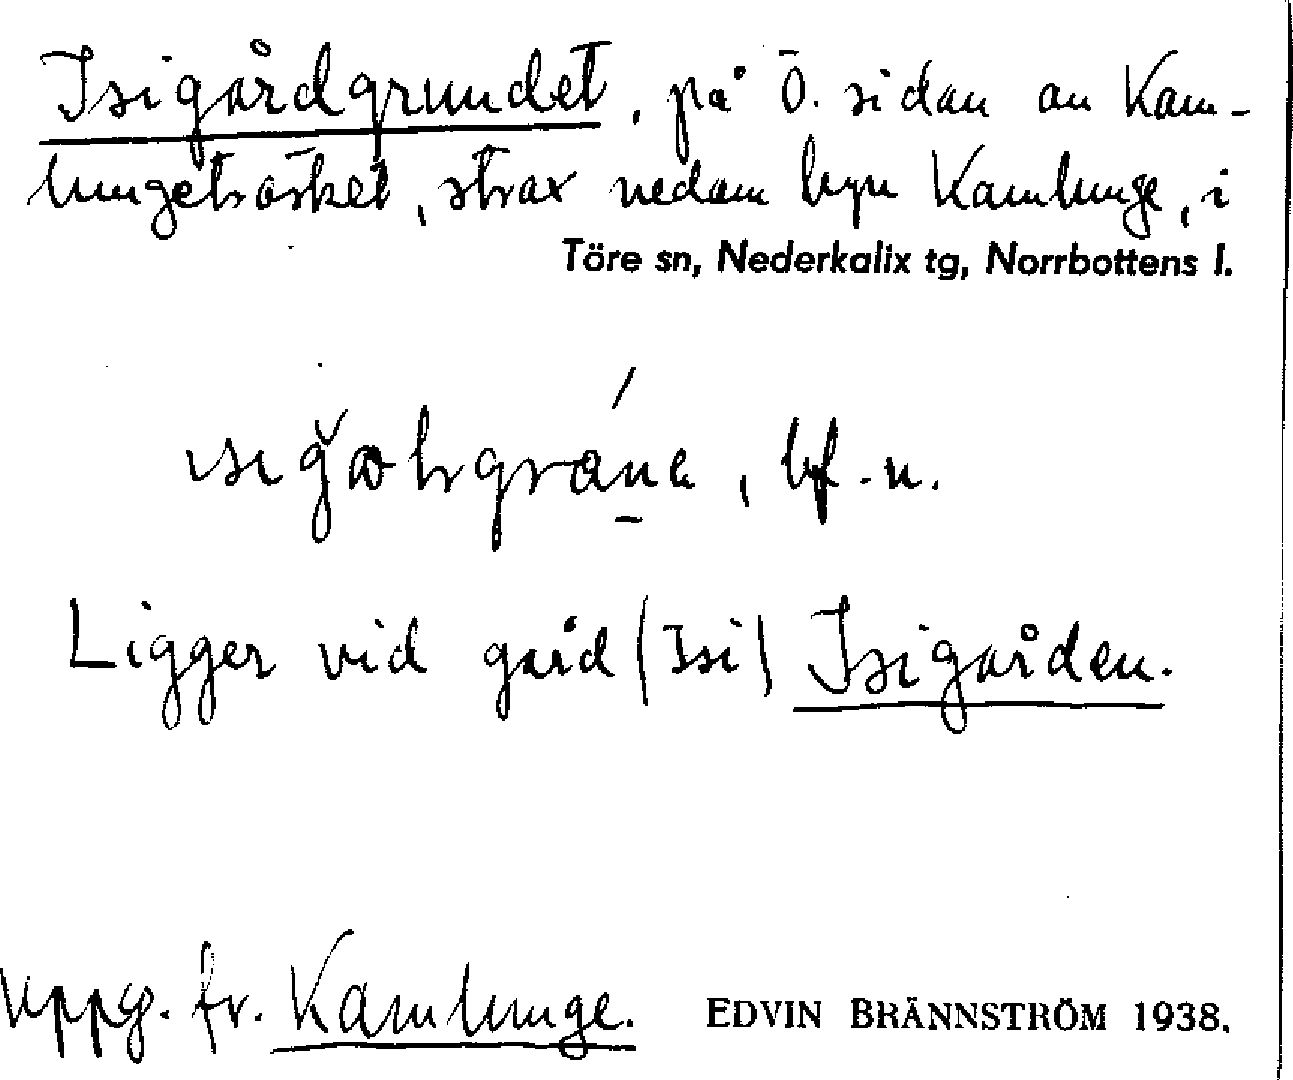 Isigårdgrundet, på Ö. sidan au Kam-
lungeträsket, strax nedom byn Kamlunge, i
Töre sn, Nederkalix tg, Norrbottens l.
, bf. n.
Ligger vid gård (Isi) Isigården.
Uppg. fr. Kamlunge. EDVIN BRÄNNSTRÖM 1938.